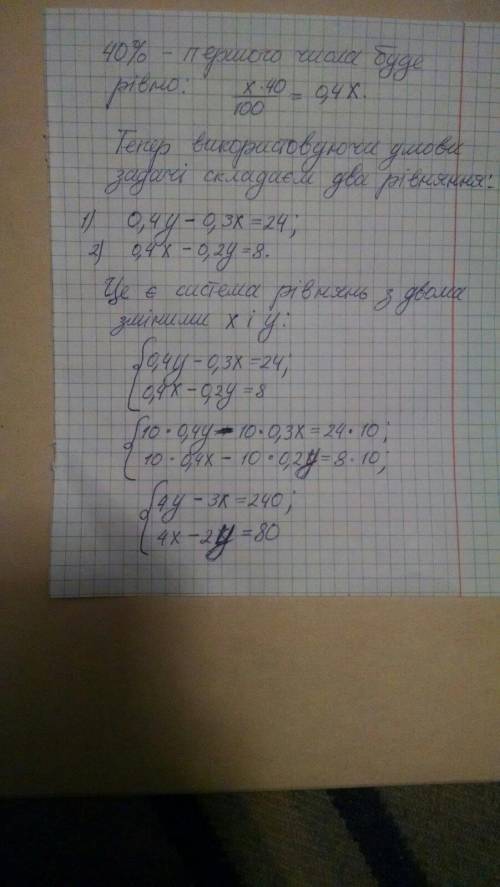 40% - першого числа буде
рівно: x·40/100 = 0,4x.
Тепер використовуючи умови
задачі складаєм два рівняння:
1) 0,4y - 0,3x = 24;
2) 0,4x - 0,2y = 8.
Це є система рівнянь з двома
зміними x і y:
{0,4y - 0,3x = 24;
0,4x - 0,2y = 8
{10·0,4y - 10·0,3x = 24·10;
10·0,4x - 10·0,2y = 8·10;
{4y - 3x = 240;
4x - 2y = 80